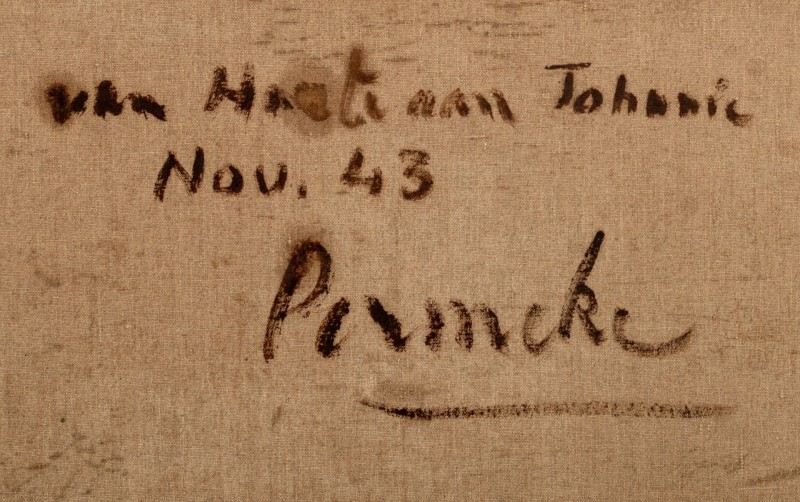 van aan Johnnie
Nov. 43
Permeke